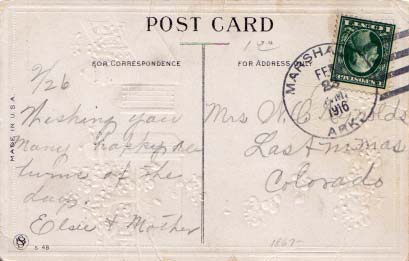 POST CARD
FOR CORRESPONDENCE
FOR ADDRESS ONLY
MADE IN U.S.A.
2/26
Wishing you
Many happy re
turns of the
day.
Elsie & Mother
S 48
MARSHA
FEB
1916
ARK.
Mrs W. C. lds
Las Animas
Colorado
1867-